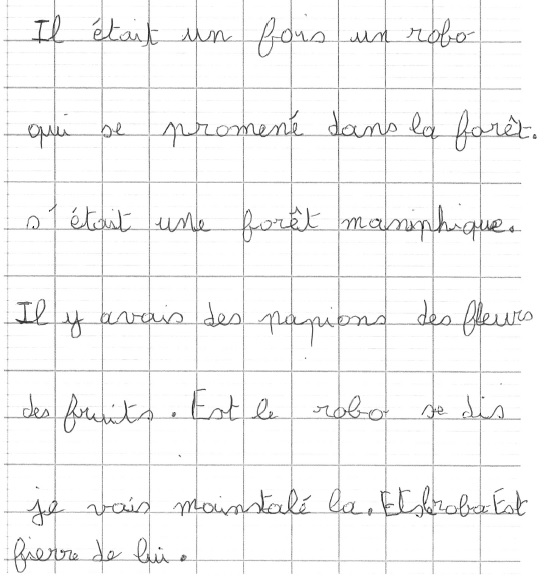 Il était un fois un robo
qui se promené dans la forêt.
s'était une forêt maniphique.
Il y avais des papions des fleurs
des fruits. Est le robo se dis
je vais mointalé la. Et le robo Est
fierre de lui.